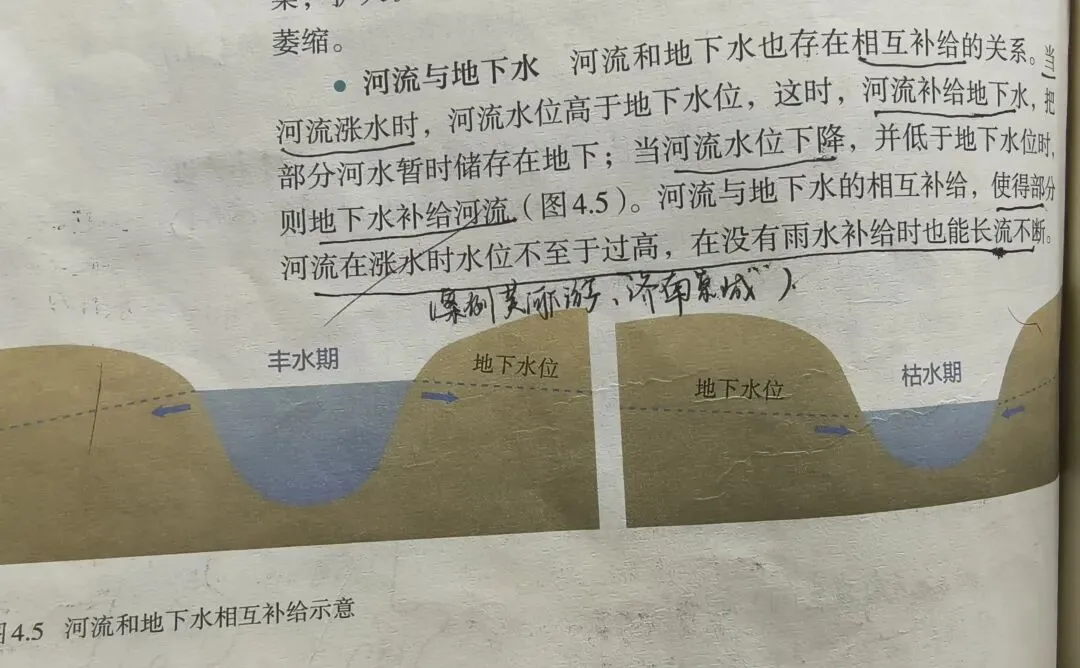 萎缩。
• 河流与地下水 河流和地下水也存在相互补给的关系。当
河流涨水时，河流水位高于地下水位，这时，河流补给地下水，把
部分河水暂时储存在地下；当河流水位下降，并低于地下水位时，
则地下水补给河流（图4.5）。河流与地下水的相互补给，使得部分
河流在涨水时水位不至于过高，在没有雨水补给时也能长流不断。
丰水期
地下水位
地下水位
枯水期
4.5 河流和地下水相互补给示意